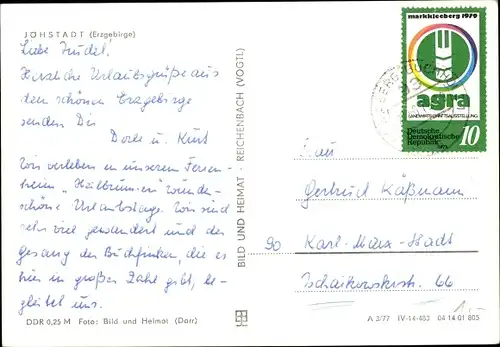 JÖHSTADT (Erzgebirge)
Liebe Trudel!
Herzliche Urlaubsgrüße aus
dem schönen Erzgebirge
senden Dir
Dorle u. Kurt
Wir verleben in unserem Ferien-
heim "Heilbrunnen" wunder-
schöne Urlaubstage. Wir sind
sehr viel gewandert und der
Gesang der Buchfinken, die es
hier in großer Zahl gibt, be-
gleitet uns.
DDR 0,25 M Foto: Bild und Heimat (Darr)
BILD UND HEIMAT · REICHENBACH (VOGTL)
markkleeberg 1979
agra
LANDWIRTSCHAFTSAUSSTELLUNG
Deutsche
Demokratische
Republik
10
Frau
Gertrud Käßmann
90 Karl-Marx-Stadt
Tschaikowskistr. 66
1.-
A 3/77 IV-14-483 04 14 01 805